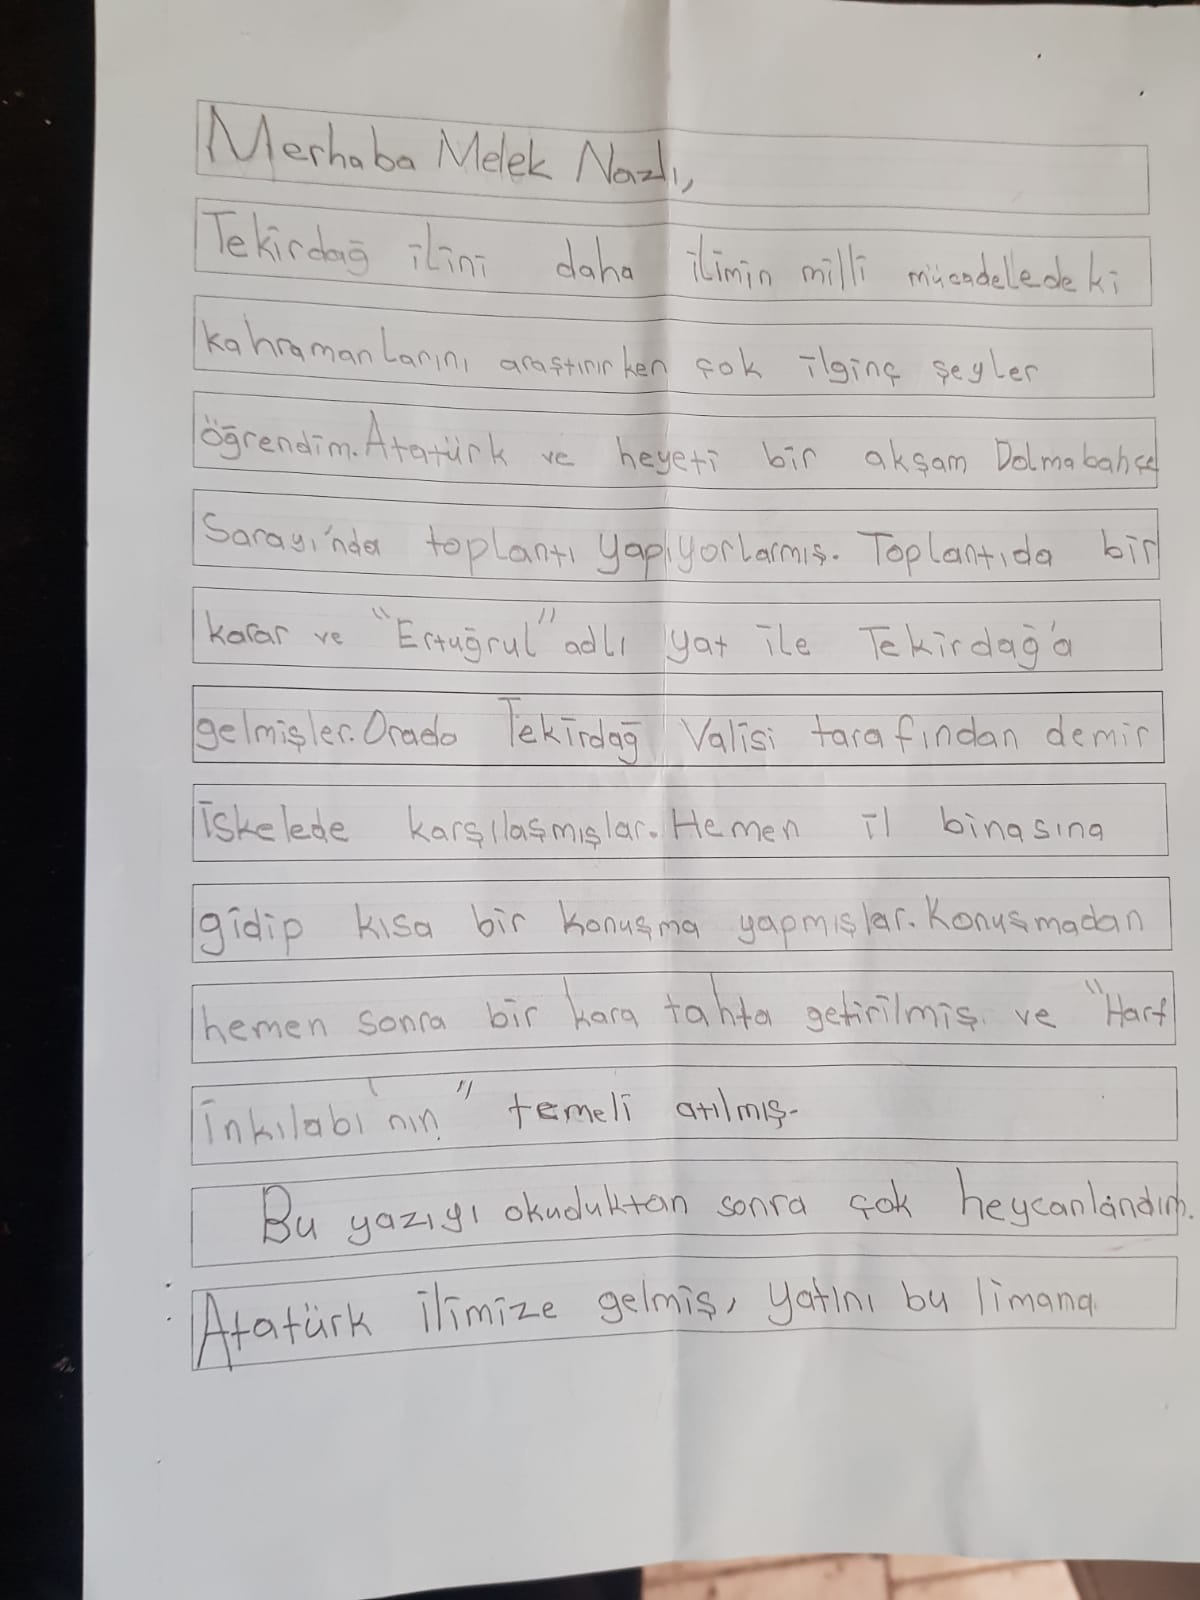 Merhaba Melek Nazlı,
Tekirdağ ilini daha ilimin milli mücadeledeki
kahramanlarını araştırırken çok ilginç şeyler
öğrendim. Atatürk ve heyeti bir akşam Dolmabahçe
Sarayı'nda toplantı yapıyorlarmış. Toplantıda bir
karar ve "Ertuğrul" adlı yat ile Tekirdağ'a
gelmişler. Orada Tekirdağ Valisi tarafından demir
iskelede karşılaşmışlar. Hemen il binasına
gidip kısa bir konuşma yapmışlar. Konuşmadan
hemen sonra bir kara tahta getirilmiş ve "Harf
İnkılabı'nın" temeli atılmış.
Bu yazıyı okuduktan sonra çok heycanlandım.
Atatürk ilimize gelmiş, yatını bu limana